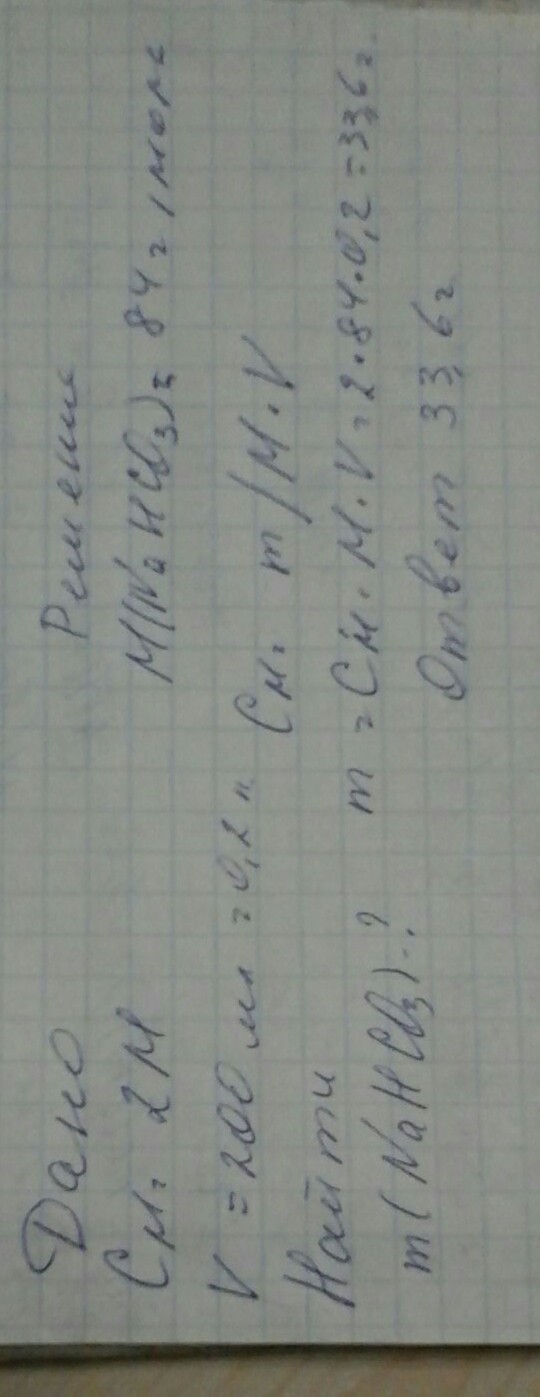 Дано
Cм = 2 М
V = 200 мл = 0,2 л
Найти
m(NaHCO3)-?
Решение
M(NaHCO3) = 84 г/моль
Cм = m/M·V
m = Cм·M·V = 2·84·0,2 = 33,6 г.
Ответ 33,6 г